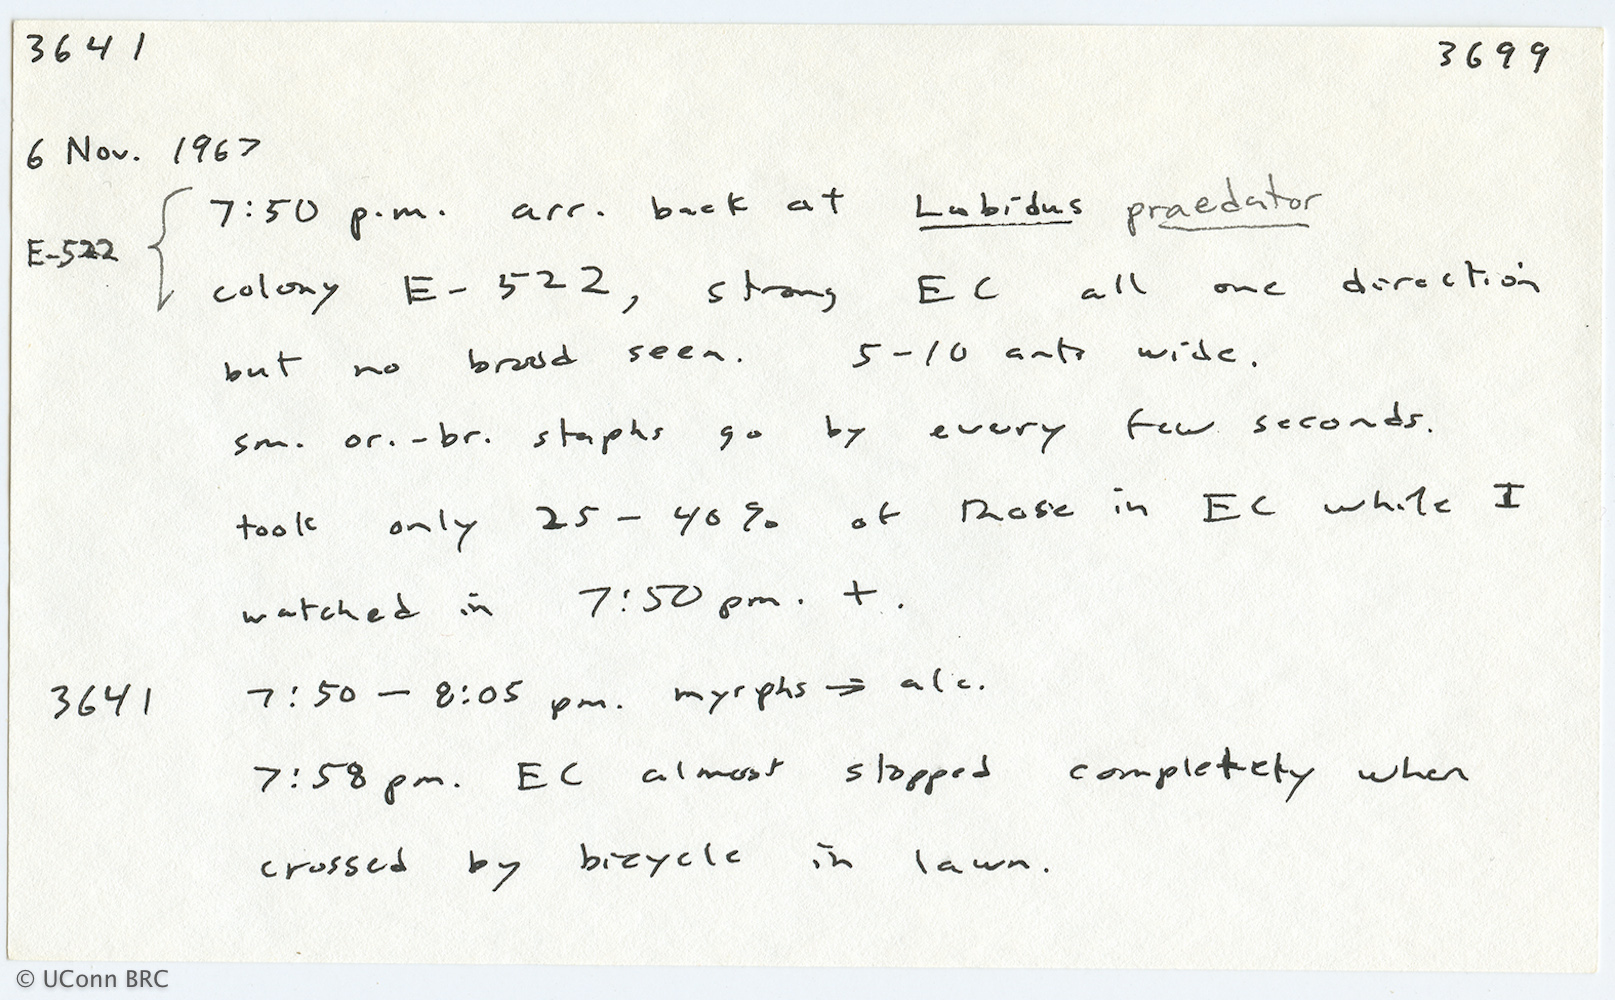 3641 3699
6 Nov. 1967
7:50 p.m. arr. back at Labidus praedator
E-522
colony E-522, strong EC all one direction
but no brood seen. 5-10 ants wide.
sm. or.-br. staphs go by every few seconds.
took only 25-40% of those in EC while I
watched in 7:50 pm. +.
3641 7:50 - 8:05 pm. myrphs → alc.
7:58 pm. EC almost stopped completely when
crossed by bicycle in lawn.
© UConn BRC